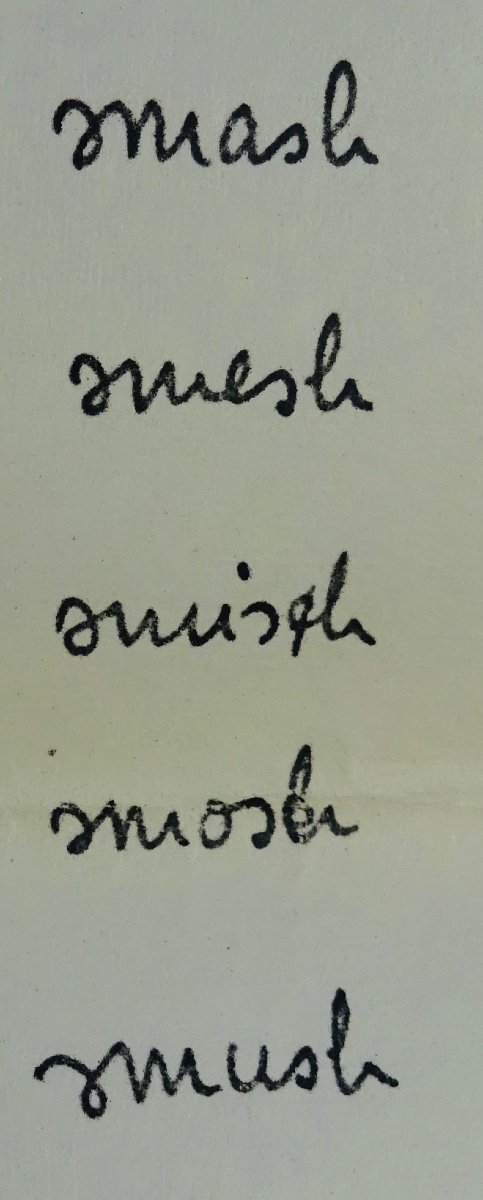 smash
smesh
smish
smosh
smush